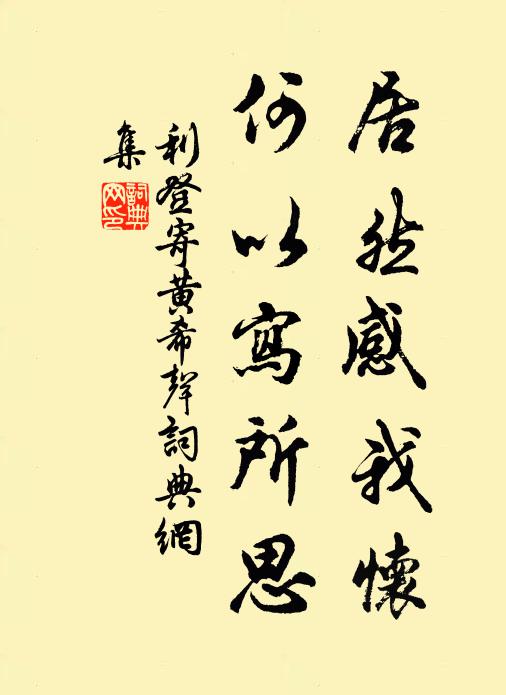 居然感我懷
何以寫所思
利登寄黄希聲詞典網
集
詞典
网印